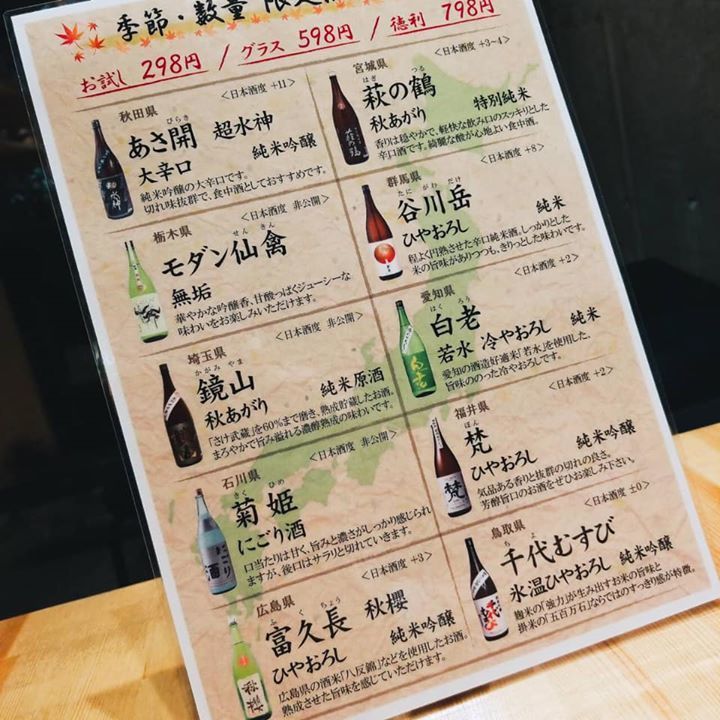 季節・数量 限定
お試し 298円 / グラス 598円 / 徳利 798円
秋田県 <日本酒度 +11>
びらき
あさ開 超水神
大辛口 純米吟醸
純米吟醸の大辛口です。
切れ味抜群で、食中酒としておすすめです。
宮城県 <日本酒度 +3~4>
はぎ つる
萩の鶴
秋あがり 特別純米
香りは穏やかで、軽快な飲み口のスッキリとした
辛口酒です。綺麗な酸が心地よい食中酒。
栃木県 <日本酒度 非公開>
せん きん
モダン仙禽
無垢
華やかな吟醸香、甘酸っぱくジューシーな
味わいをお楽しみいただけます。
群馬県 <日本酒度 +8>
たに がわ だけ
谷川岳
ひやおろし 純米
程よく円熟させた辛口純米酒。しっかりとした
米の旨味がありつつも、きりっとした味わいです。
埼玉県 <日本酒度 非公開>
かがみ やま
鏡山
秋あがり 純米原酒
「さけ武蔵」を60%まで磨き、熟成貯蔵したお酒。
まろやかで旨み溢れる濃醇熟成の味わいです。
愛知県 <日本酒度 +2>
はく ろう
白老
若水 冷やおろし 純米
愛知の酒造好適米「若水」を使用した、
旨味ののった冷やおろしです。
石川県 <日本酒度 非公開>
きく ひめ
菊姫
にごり酒
口当たりは甘く、旨みと濃さがしっかり感じられ
ますが、後口はサラリと切れていきます。
福井県 <日本酒度 +2>
ぼん
梵
ひやおろし 純米吟醸
気品ある香りと抜群の切れの良さ。
芳醇旨口のお酒をぜひお楽しみ下さい。
広島県 <日本酒度 +3>
ふ く ちょう
富久長 秋櫻
ひやおろし 純米吟醸
広島県の酒米「八反錦」などを使用したお酒。
熟成させた旨味を感じていただけます。
鳥取県 <日本酒度 ±0>
ち よ
千代むすび
氷温ひやおろし 純米吟醸
麹米の「強力」が生み出すお米の旨味と
掛米の「五百万石」ならではのすっきり感が特徴。